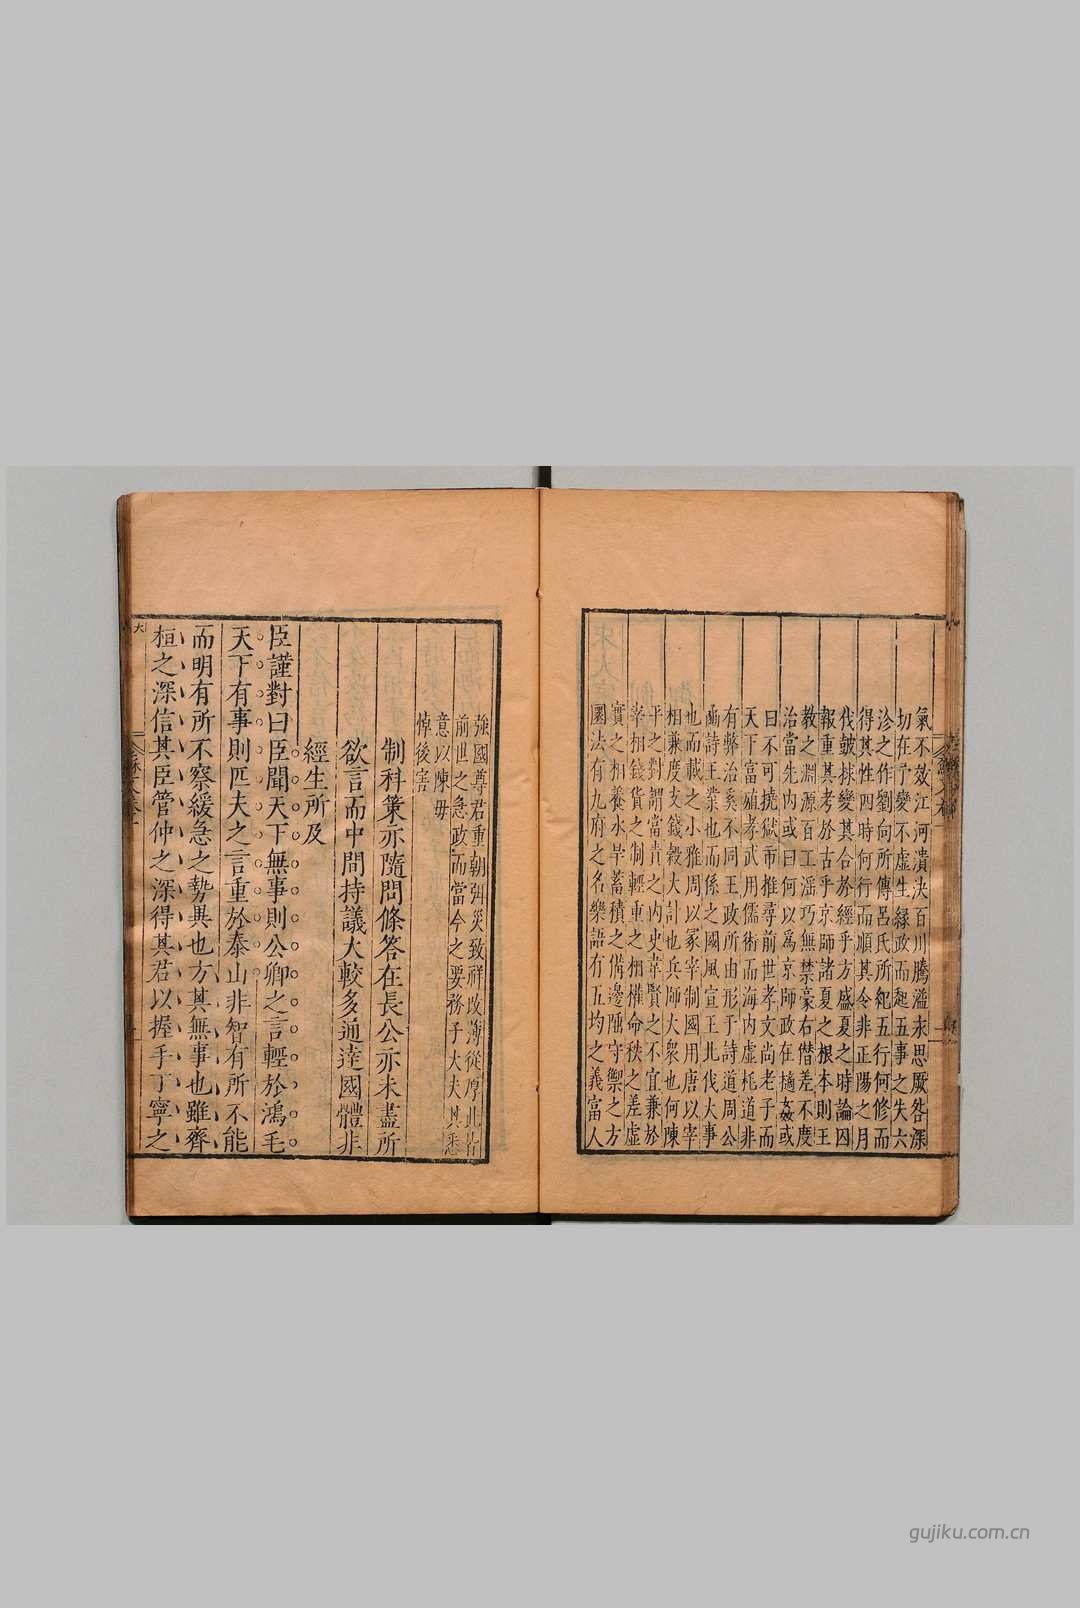 氣不效江河潰決百川騰溢永思厥咎深
切在予變不虛生緣政而起五事之失六
沴之作劉向所傳呂氏所紀五行何修而
得其性四時何行而順其令非正陽之月
伐皷捄變其合於經乎方盛夏之時論囚
報重其考於古乎京師諸夏之根本則王
教之淵源百工滛巧無禁豪右僣差不度
治當先内或曰何以爲京師政在擿姦或
曰不可撓獄市推尋前世孝文尚老子而
天下富殖孝武用儒術而海内虛耗道非
有弊治奚不同王政所由形于詩道周公
豳詩王業也而係之國風宣王北伐大事
也而載之小雅周以冡宰制國用唐以宰
相兼度支錢穀大計也兵師大衆也何陳
平之對謂當責之内史韋賢之不宜兼於
宰相錢貨之制輕重之相權命秩之差虛
實之相養水旱蓄積之備邊陲守禦之方
圜法有九府之名樂語有五均之義富人
強國尊君重朝弭災致祥改薄從厚此皆
前世之急政而當今之要務子大夫其悉
意以陳毋
悼後害
制科策亦隨問條答在長公亦未盡所
欲言而中間持議大較多通逹國體非
經生所及
臣謹對曰臣聞天下無事則公卿之言輕於鴻毛
天下有事則匹夫之言重於泰山非智有所不能
而明有所不察緩急之勢異也方其無事也雖齊
桓之深信其臣管仲之深得其君以握手丁寧之
gujiku.com.cn